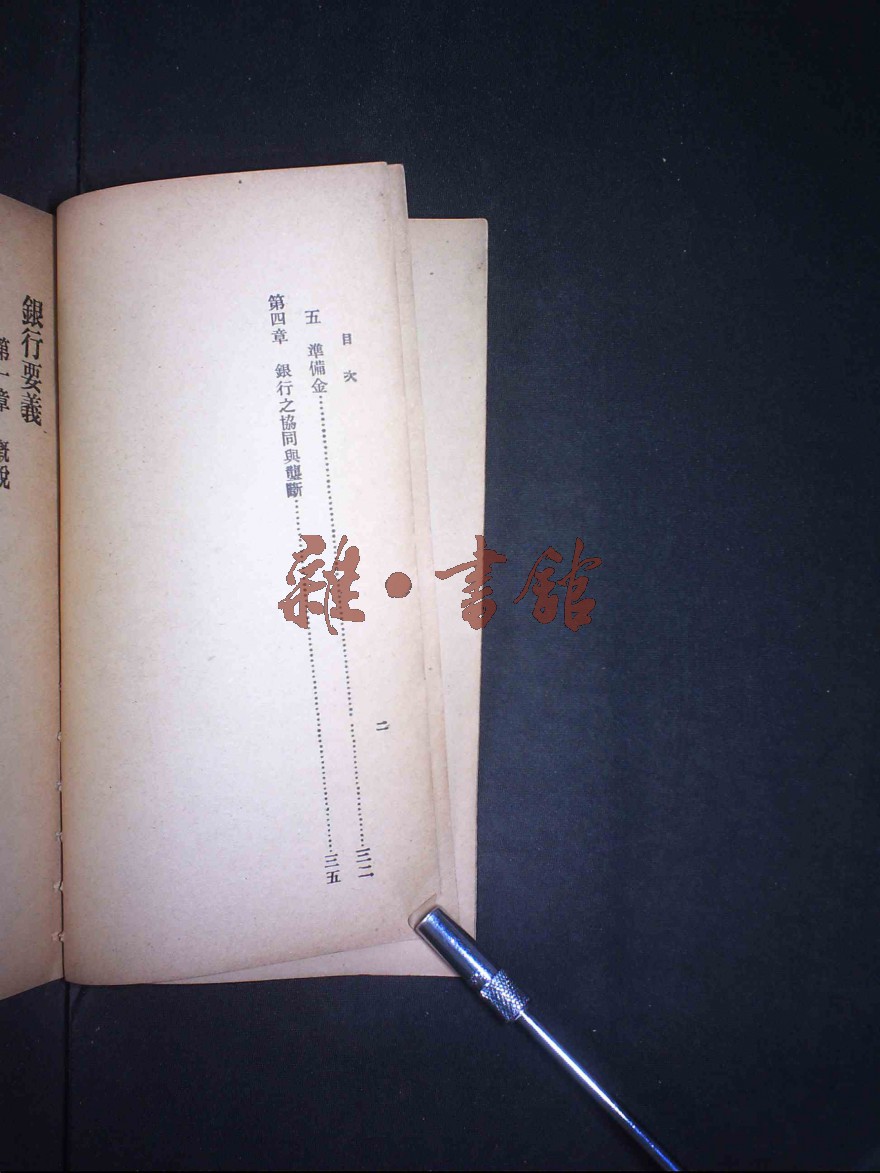 目次
二
五 準備金……三二
第四章 銀行之協同與壟斷……三五
銀行要義
第一章 概說
雜·書館